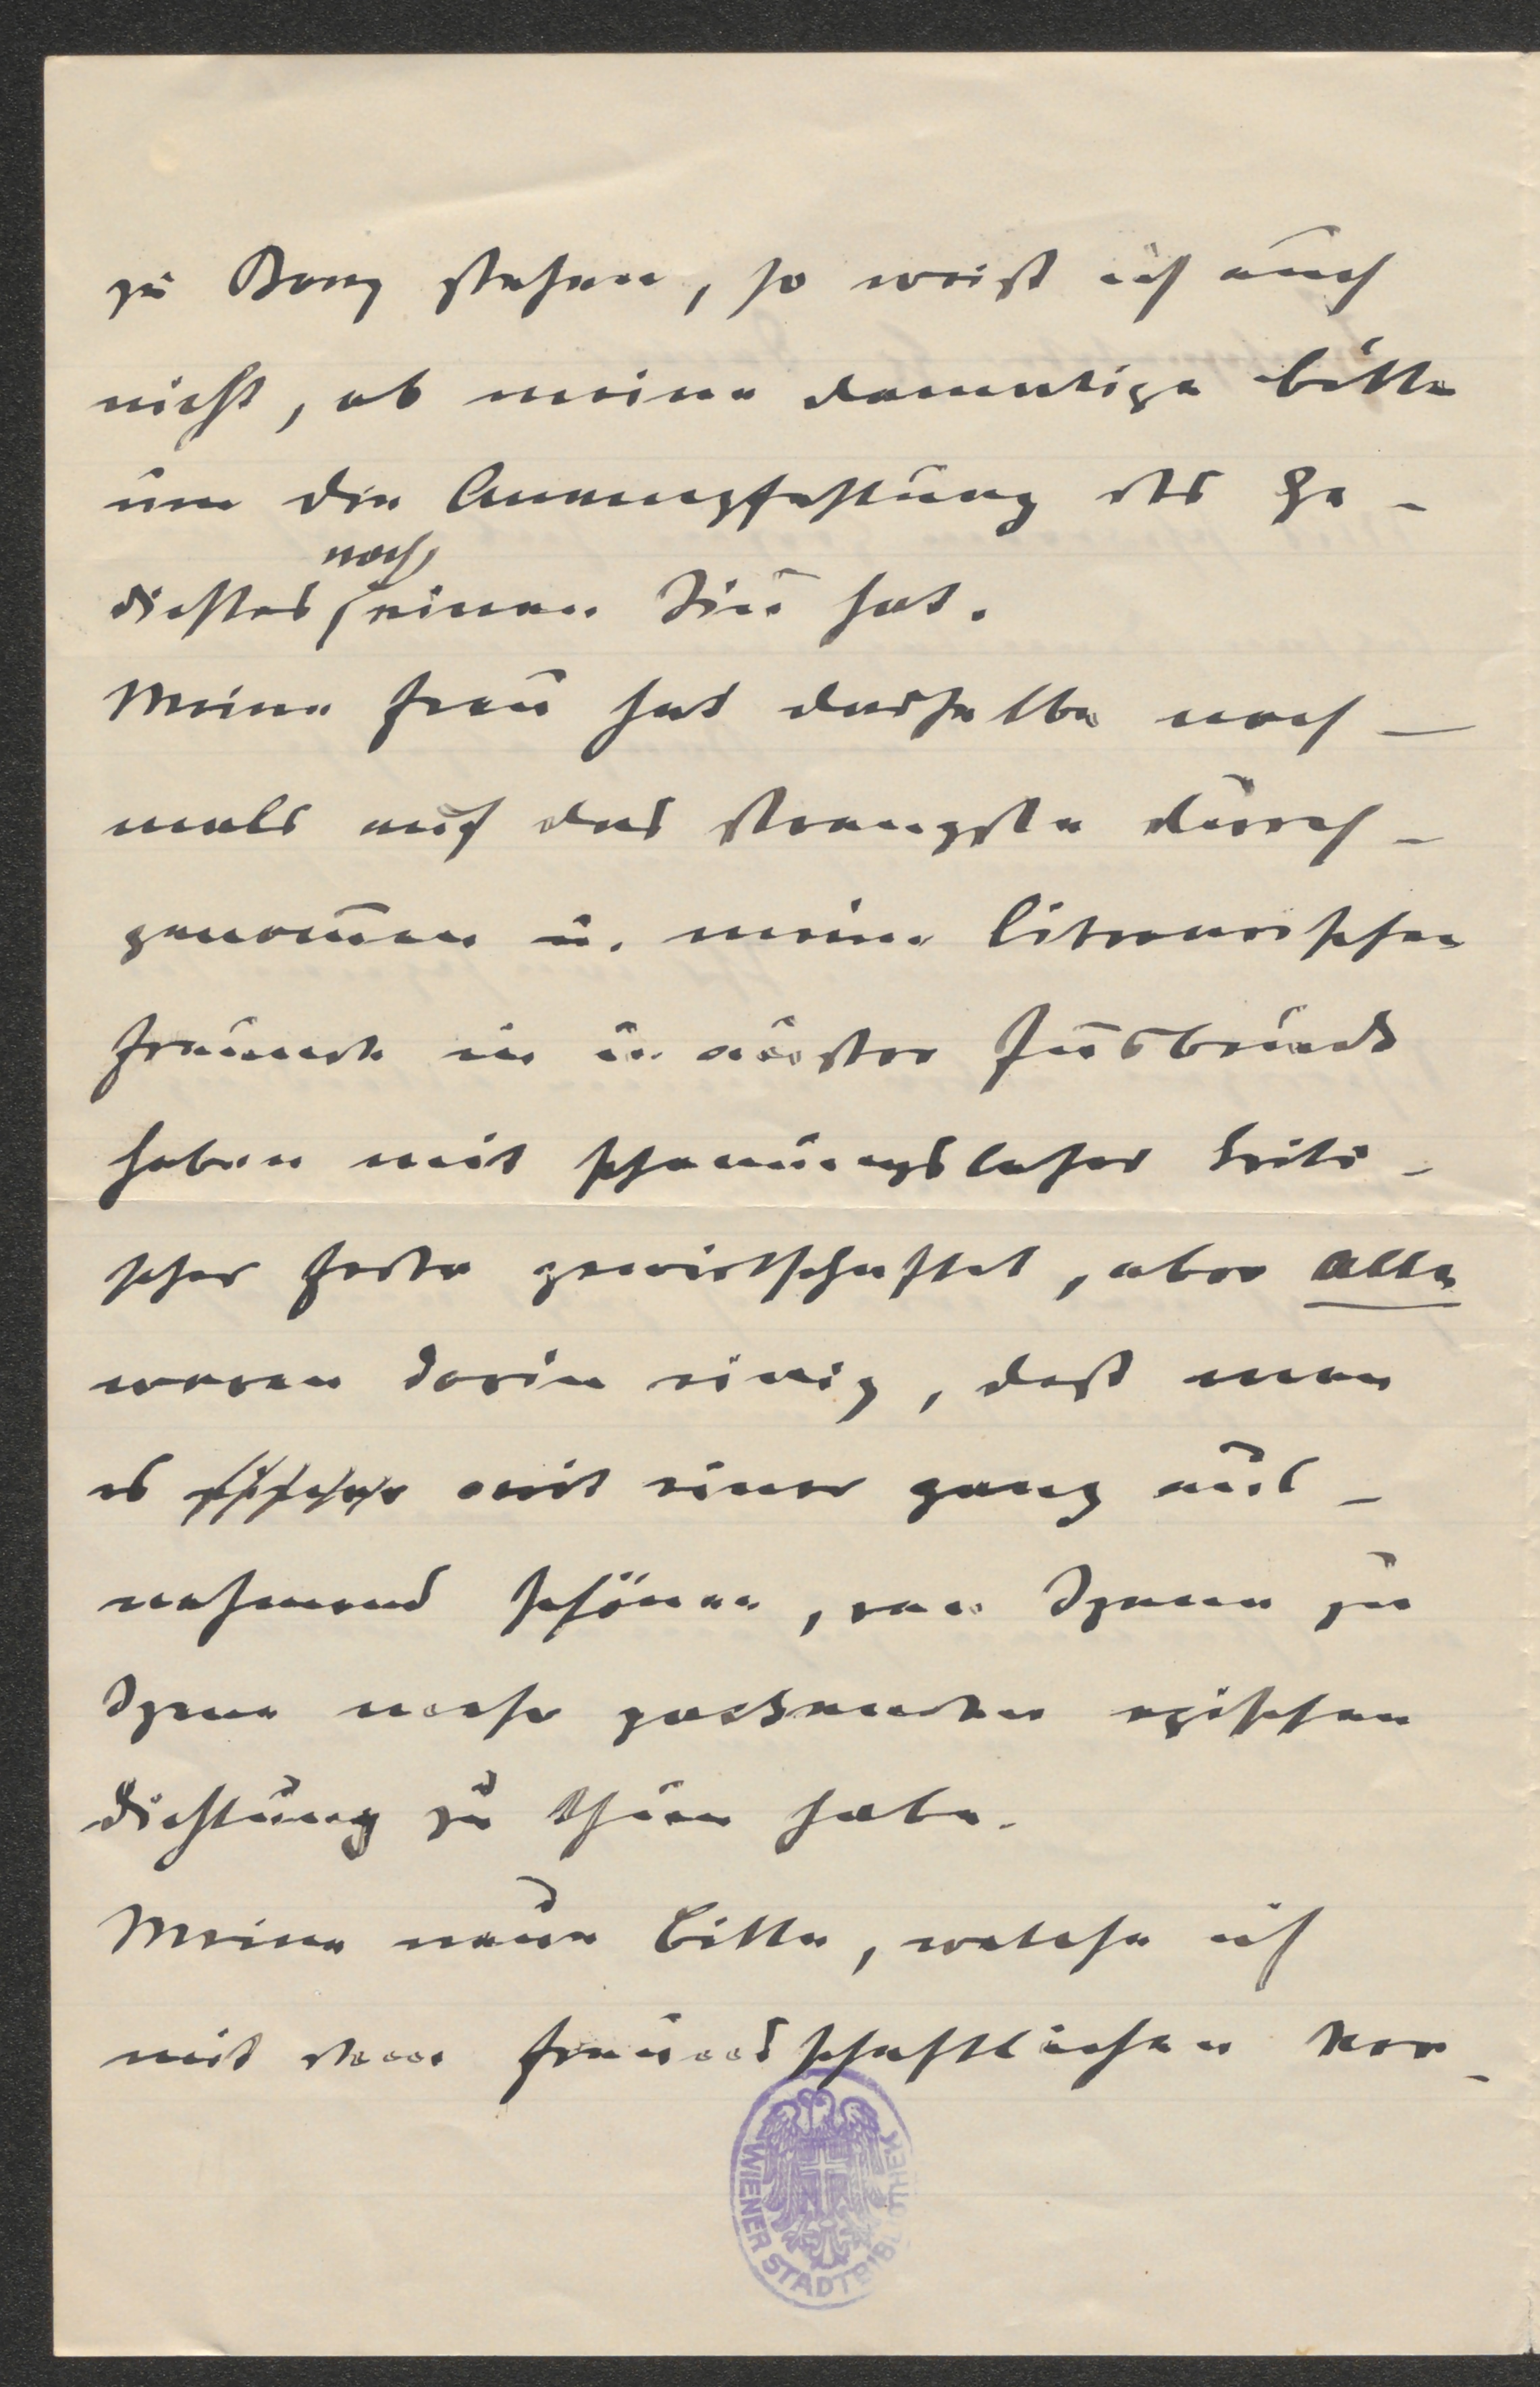 zu Bong stehen, so weiß ich auch
nicht, ob meine damalige Bitte
um die Anempfehlung des Ge-
noch
dichtes einen Sinn hat.
Meine Frau hat dasselbe noch-
mals auf das strengste durch-
genom̅en u. meine literarischen
Freunde in u. außer Innsbruck
haben mit schonungsloser kriti-
scher Feder gewirtschaftet, aber alle
waren darin einig, daß man
es mit einer ganz aus-
nehmend schönen, von Szene zu
Szene mehr packenden epischen
Dichtung zu thun habe.
Meine neue Bitte, welche ich
mit dem freundschaftlichen Ver-
WIENER STADTBIBLIOTHEK